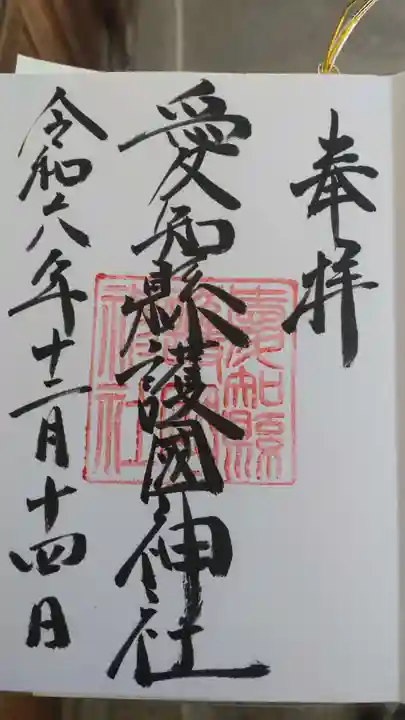 奉拝
愛知縣護國神社
愛知縣護國神社
令和六年十二月十四日